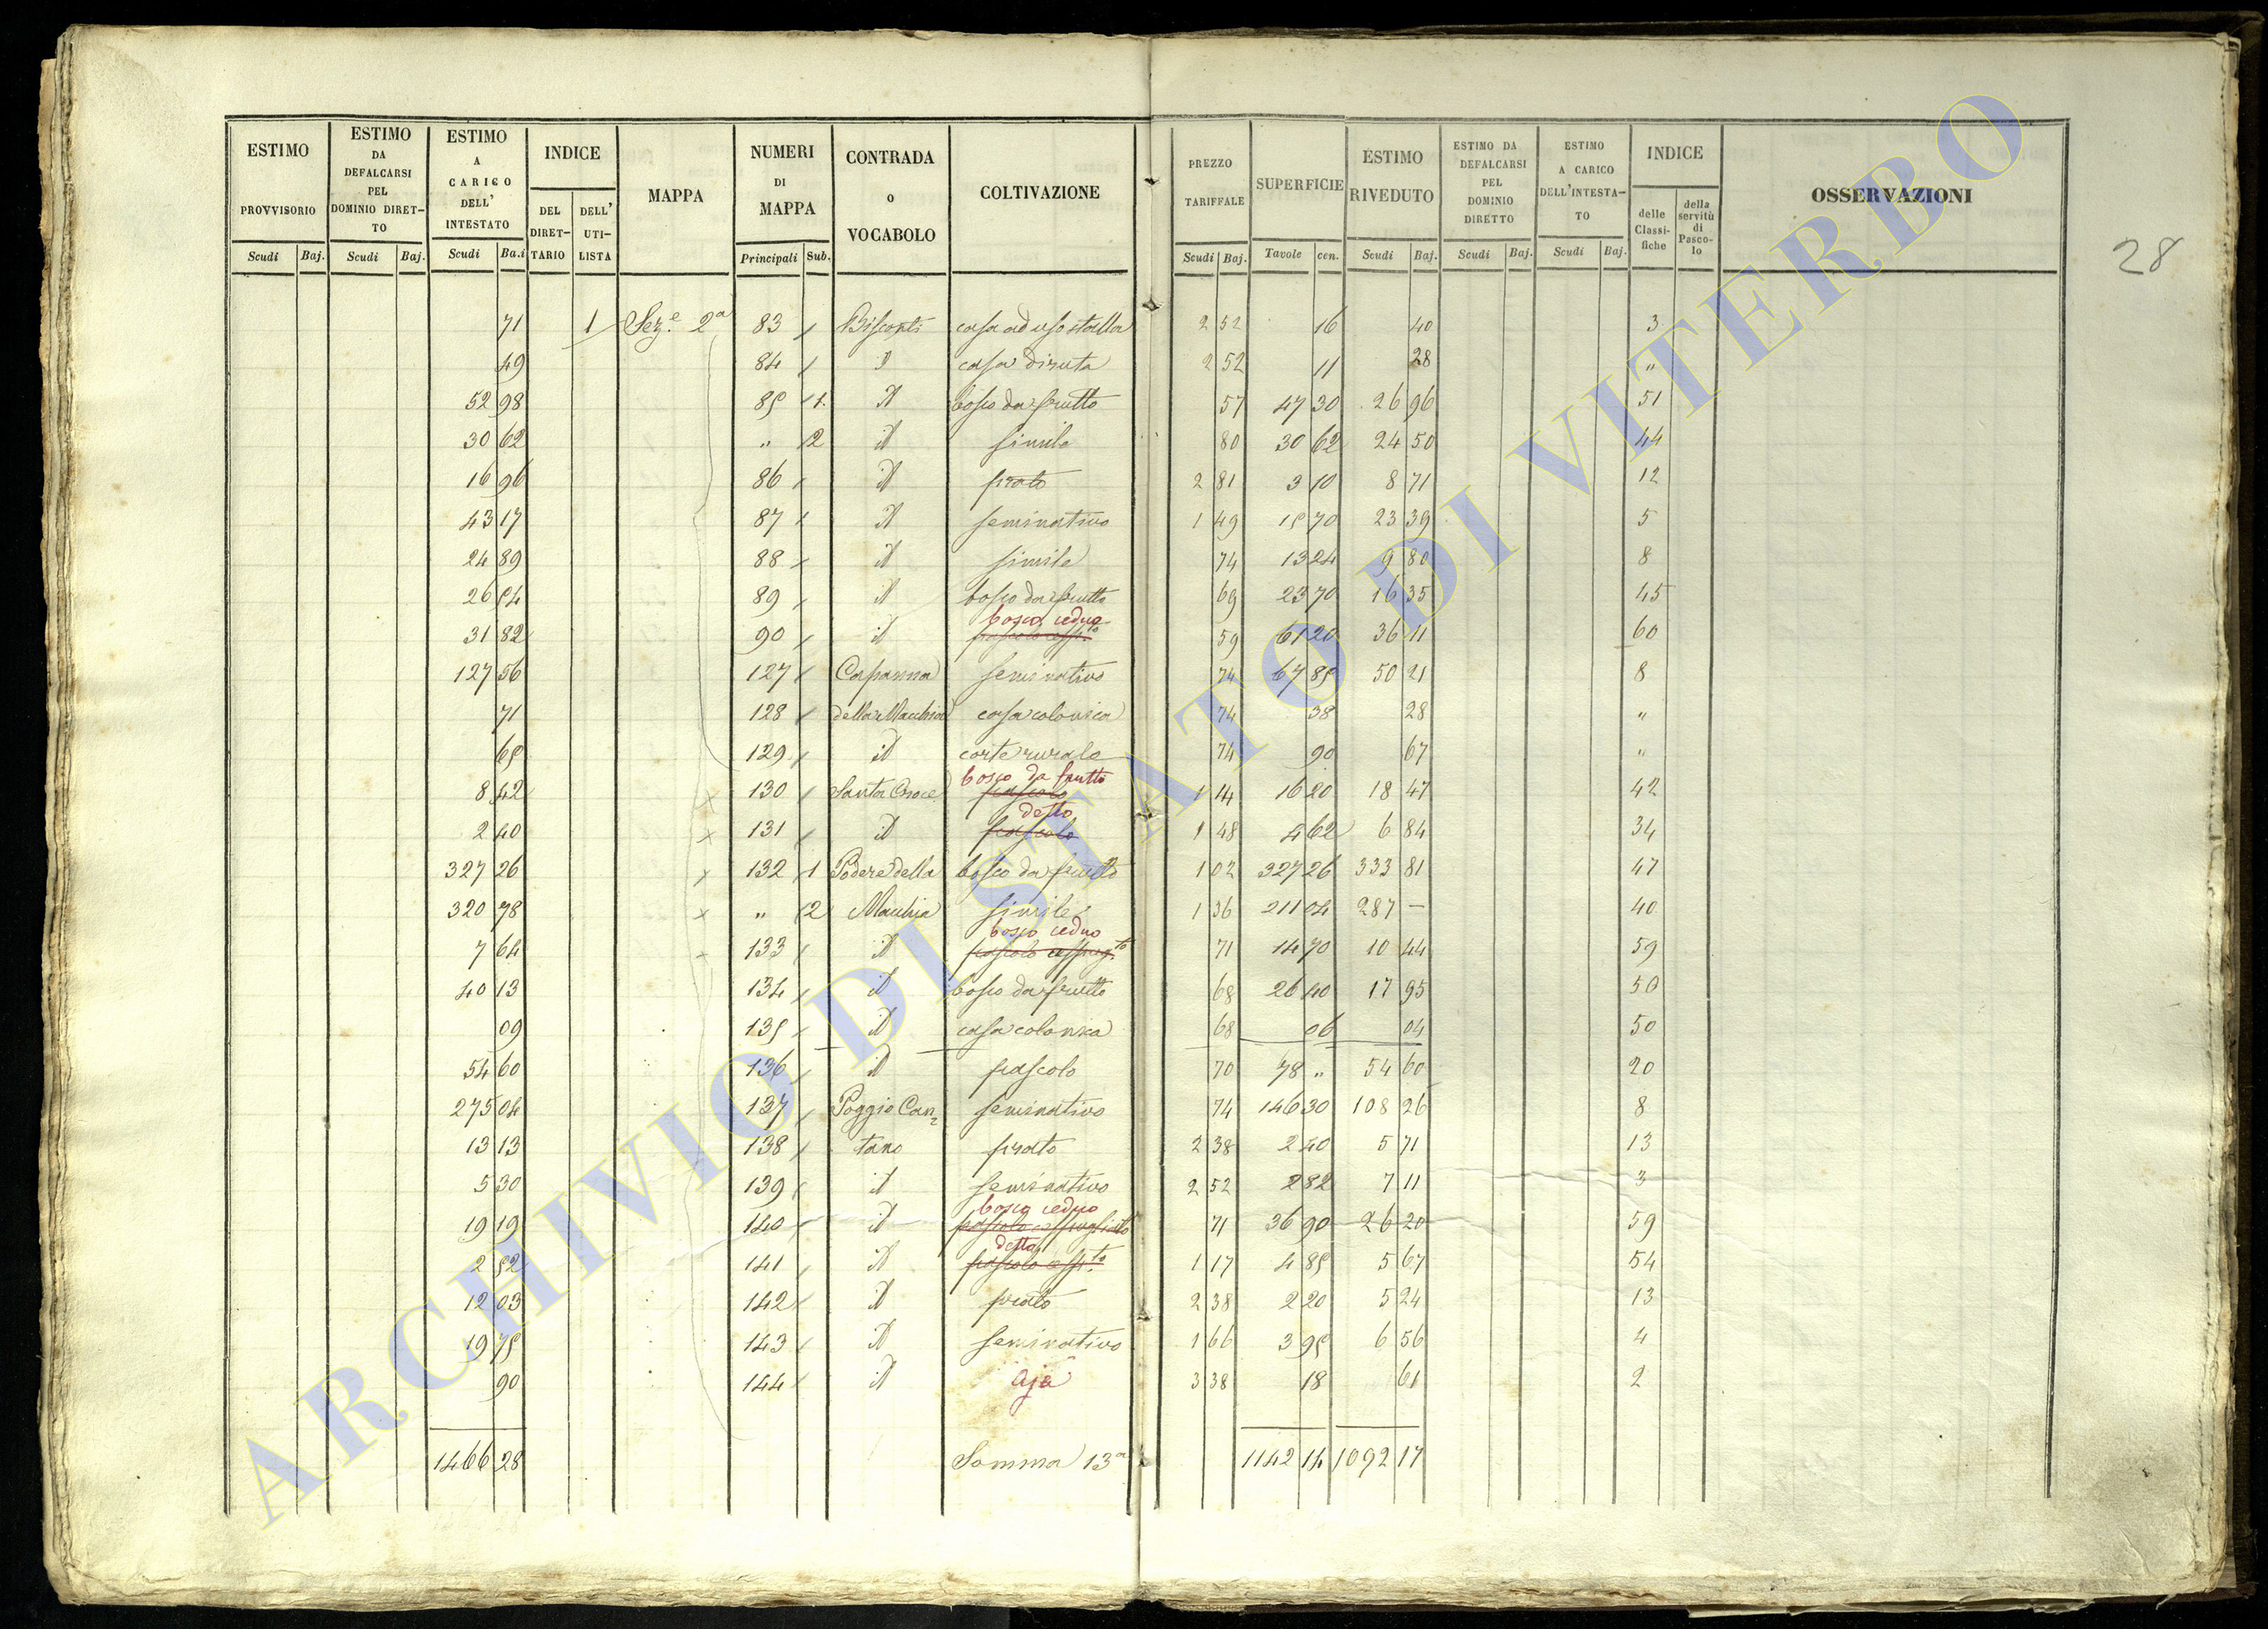 ESTIMO PROVVISORIO | ESTIMO DA DEFALCARSI PEL DOMINIO DIRET-TO | ESTIMO A CARICO DELL' INTESTATO | INDICE | MAPPA | NUMERI DI MAPPA | CONTRADA O VOCABOLO | COLTIVAZIONE | PREZZO TARIFFALE | SUPERFICIE | ESTIMO RIVEDUTO | ESTIMO DA DEFALCARSI PEL DOMINIO DIRETTO | ESTIMO A CARICO DELL'INTESTA-TO | INDICE | OSSERVAZIONI
Scudi Baj. | Scudi Baj. | Scudi Ba.i | DEL DIRET-TARIO | DELL' UTI-LISTA | Principali Sub. | Scudi Baj. | Tavole cen. | Scudi Baj. | Scudi Baj. | Scudi Baj. | delle Classi-fiche | della servitù di Pasco-lo
28
71 1 Sez.e 2a 83 Bisconti casa ad uso stalla 2 52 16 40 3
49 84 casa diruta 2 52 11 28 "
52 98 85 1. id bosco da frutto 57 47 30 26 96 51
30 62 " 2 id simile 80 30 62 24 50 44
16 96 86 id prato 2 81 3 10 8 71 12
43 17 87 id seminativo 1 49 15 70 23 39 5
24 89 88 id simile 74 13 24 9 80 8
26 54 89 id bosco da frutto 69 23 70 16 35 45
bosco ceduo
31 82 90 id pascolo cesp.to 59 61 20 36 11 60
127 56 127 Capanna seminativo 74 67 85 50 21 8
71 128 della Macchia casa colonica 74 38 28 "
65 129 id corte rurale 74 90 67 "
bosco da frutto
8 42 130 Santa Croce pascolo 1 14 16 20 18 47 42
detto
2 40 131 id pascolo 1 48 4 62 6 84 34
327 26 132 1 Podere della bosco da frutto 1 02 327 26 333 81 47
320 78 " 2 Macchia simile 1 36 211 04 287 — 40
bosco ceduo
7 64 133 id pascolo cespug.to 71 14 70 10 44 59
40 13 134 id bosco da frutto 68 26 40 17 95 50
09 135 id casa colonica 68 06 04 50
54 60 136 id pascolo 70 78 " 54 60 20
275 04 137 Poggio Can= seminativo 74 146 30 108 26 8
13 13 138 tano prato 2 38 2 40 5 71 13
5 30 139 id seminativo 2 52 2 82 7 11 3
bosco ceduo
19 19 140 id pascolo cespugliato 71 36 90 26 20 59
detto
2 52 141 id pascolo cesp.to 1 17 4 85 5 67 54
12 03 142 id prato 2 38 2 20 5 24 13
19 75 143 id seminativo 1 66 3 95 6 56 4
90 144 id Aja 3 38 18 61 2
1466 28 Somma 13a 1142 14 1092 17
ARCHIVIO DI STATO DI VITERBO